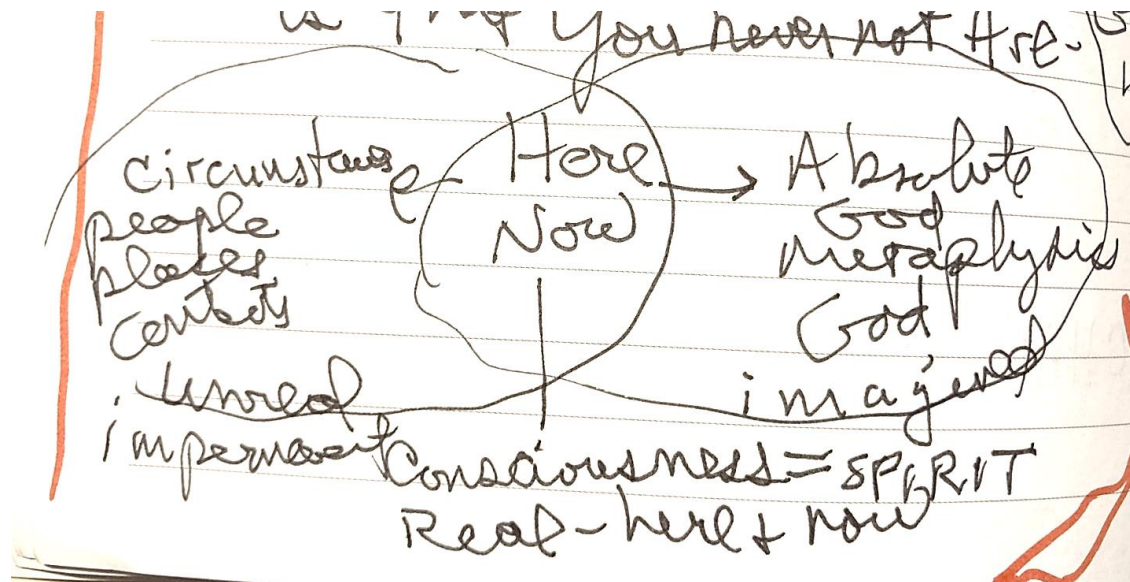 is that you never not Are.
circumstances
people
places
contexts
unreal
impermanent
Here
Now
Absolute
God
Metaphysics
God
imagined
Consciousness = SPIRIT
Real - here + now